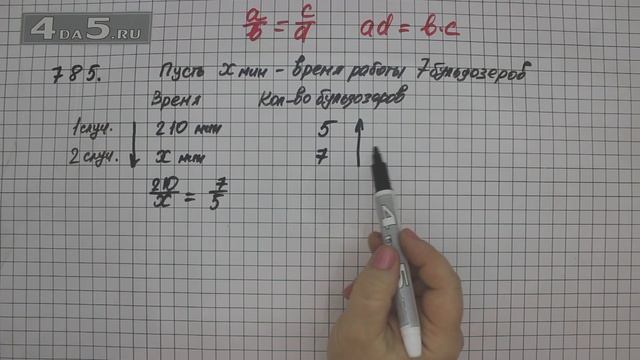 4DA5.RU
a/b = c/d ad = b·c
785. Пусть x мин – время работы 7 бульдозеров
Время Кол-во бульдозеров
1 случ. 210 мин 5
2 случ. x мин 7
210/x = 7/5